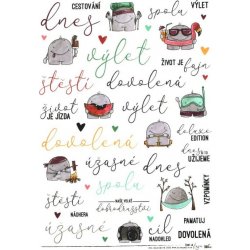 CESTOVÁNÍ
spolu
VÝLET
dnes
výlet
ŽIVOT JE fajn
štěstí
dovolená
život
JE JÍZDA
výlet
deluxe
EDITION
dovolená
dnes
UŽIJEME
úžasné
dnes
spolu
VZPOMÍNKY
štěstí
NÁDHERA
NAŠE VELKÉ
dobrodružství
PAMATUJ
úžasné
cíl
NADOHLED
DOVOLENÁ